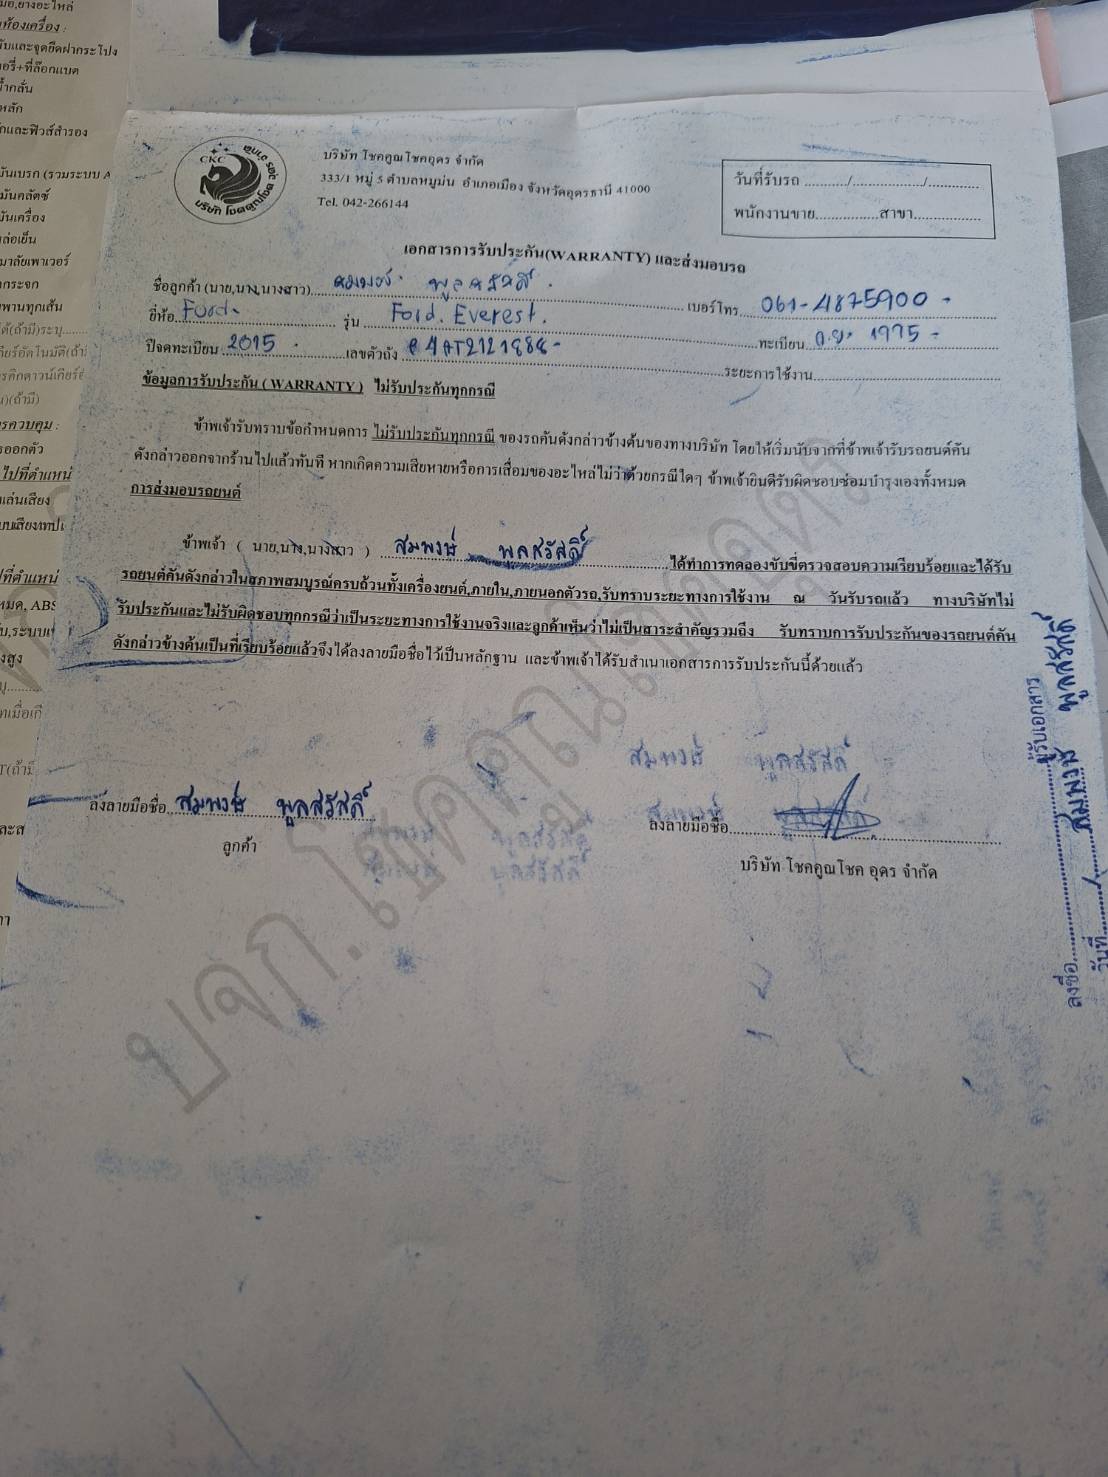 มือ,ยางอะไหล่
ห้องเครื่อง :
รับและจุดยึดฝากระโปง
อรี่+ที่ล๊อกแบต
น้ำกลั่น
หลัก
กและฟิวส์สำรอง
มันเบรก (รวมระบบ A
มันคลัตช์
มันเครื่อง
ล่อเย็น
มาลัยเพาเวอร์
กระจก
พานทุกเส้น
ได้(ถ้ามี)ระบุ
(ถ้ามี)
รควบคุม :
รออกตัว
ไปที่ตำแหน่
เล่นเสียง
ที่ตำแหน่
หมด, ABS
งสูง
CKC
บริษัท โชคคูณโชคอุดร จำกัด
333/1 หมู่ 5 ตำบลหมูม่น อำเภอเมือง จังหวัดอุดรธานี 41000
Tel. 042-266144
วันที่รับรถ ............/................../.............
พนักงานขาย................สาขา.................
เอกสารการรับประกัน(WARRANTY) และส่งมอบรถ
ชื่อลูกค้า (นาย,นาง,นางสาว) สมพงษ์ พูลสวัสดิ์ เบอร์โทร 061-4875900
ยี่ห้อ Ford รุ่น Ford. Everest. ทะเบียน 1975
ปีจดทะเบียน 2015 เลขตัวถัง ระยะการใช้งาน
ข้อมูลการรับประกัน ( WARRANTY ) ไม่รับประกันทุกกรณี
ข้าพเจ้ารับทราบข้อกำหนดการ ไม่รับประกันทุกกรณี ของรถคันดังกล่าวข้างต้นของทางบริษัท โดยให้เริ่มนับจากที่ข้าพเจ้ารับรถยนต์คัน
ดังกล่าวออกจากร้านไปแล้วทันที หากเกิดความเสียหายหรือการเสื่อมของอะไหล่ไม่ว่าด้วยกรณีใดๆ ข้าพเจ้ายินดีรับผิดชอบซ่อมบำรุงเองทั้งหมด
การส่งมอบรถยนต์
ข้าพเจ้า ( นาย,นาง,นางสาว ) สมพงษ์ พูลสวัสดิ์ ได้ทำการทดลองขับขี่ตรวจสอบความเรียบร้อยและได้รับ
รถยนต์คันดังกล่าวในสภาพสมบูรณ์ครบถ้วนทั้งเครื่องยนต์,ภายใน,ภายนอกตัวรถ,รับทราบระยะทางการใช้งาน ณ วันรับรถแล้ว ทางบริษัทไม่
รับประกันและไม่รับผิดชอบทุกกรณีว่าเป็นระยะทางการใช้งานจริงและลูกค้าเห็นว่าไม่เป็นสาระสำคัญรวมถึง รับทราบการรับประกันของรถยนต์คัน
ดังกล่าวข้างต้นเป็นที่เรียบร้อยแล้วจึงได้ลงลายมือชื่อไว้เป็นหลักฐาน และข้าพเจ้าได้รับสำเนาเอกสารการรับประกันนี้ด้วยแล้ว
สมพงษ์ พูลสวัสดิ์
ลงลายมือชื่อ สมพงษ์ พูลสวัสดิ์
ลูกค้า
ลงลายมือชื่อ
บริษัท โชคคูณโชค อุดร จำกัด
ลงชื่อ สมพงษ์ พูลสวัสดิ์ ผู้รับเอกสาร
วันที่ /
บจก.โชคคูณโชคอุดร